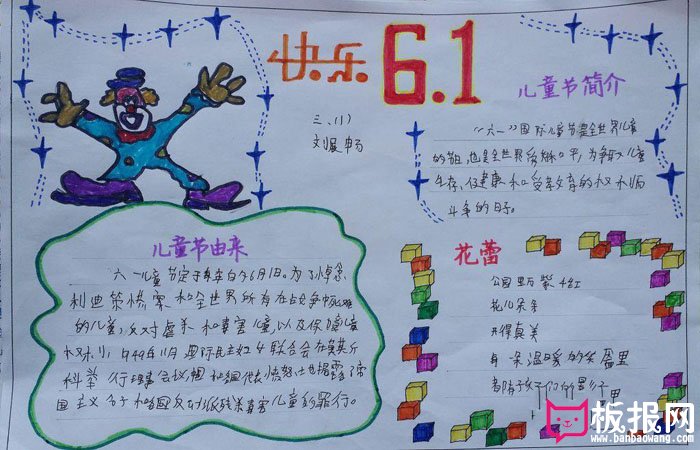 快乐 6.1
三、(1)
儿童节简介
“六一”国际儿童节是全世界儿童
的节日,也是全世界 为争取儿童
生存、保健康和受教育的权利而
斗争的日子。
儿童节由来
六一儿童节定于每年的6月1日。为了悼念
利迪策惨案和全世界所有在战争中死难
的儿童,反对虐杀和毒害儿童,以及保障儿童
权利,1949年11月国际民主妇女联合会在莫斯
科举行理事会议,
国主义分子和 反动派残杀毒害儿童的罪行。
花蕾
公园里万紫千红
花儿朵朵
开得真美
每一朵温暖的笑 里
都有孩子们的影子
板报网
www.banbaowang.com